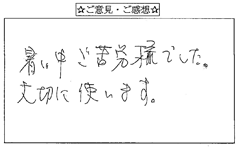 ☆ご意見・ご感想☆
暑い中ご苦労様でした。
大切に使います。